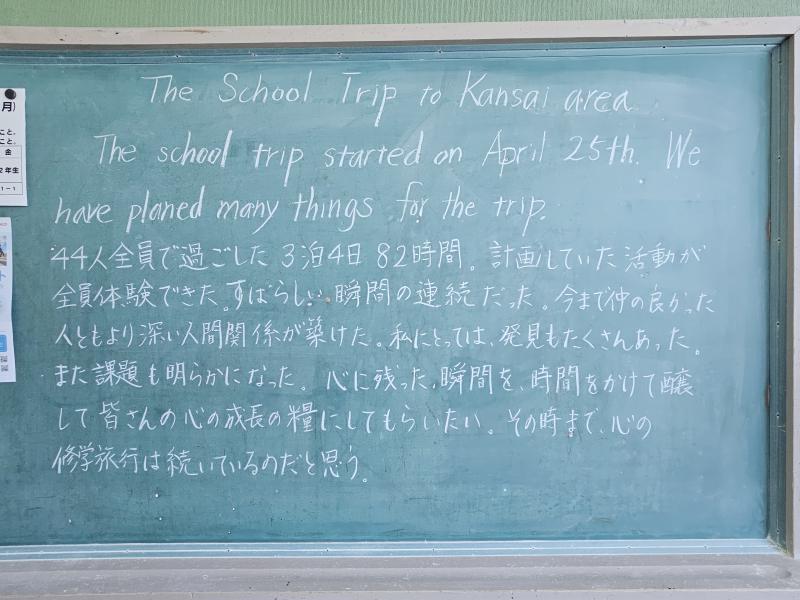 The School Trip to Kansai area
The school trip started on April 25th. We
have planed many things for the trip.
44人全員で過ごした 3泊4日 82時間。計画していた活動が
全員体験できた。すばらしい瞬間の連続だった。今まで仲の良かった
人ともより深い人間関係が築けた。私にとっては、発見もたくさんあった。
また課題も明らかになった。心に残った瞬間を、時間をかけて醸
して皆さんの心の成長の糧にしてもらいたい。その時まで、心の
修学旅行は続いているのだと思う。
月)
こと。
こと。
金
2年生
1-1